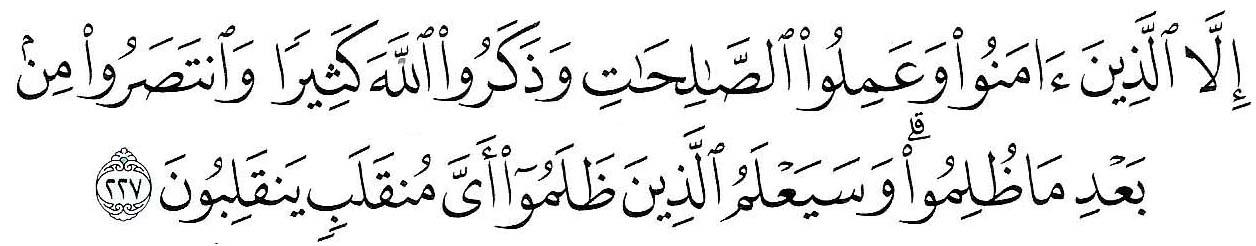 إِلَّا ٱلَّذِينَ ءَامَنُوا۟ وَعَمِلُوا۟ ٱلصَّـٰلِحَـٰتِ وَذَكَرُوا۟ ٱللَّهَ كَثِيرًا وَٱنتَصَرُوا۟ مِنۢ
بَعْدِ مَا ظُلِمُوا۟ ۗ وَسَيَعْلَمُ ٱلَّذِينَ ظَلَمُوٓا۟ أَىَّ مُنقَلَبٍ يَنقَلِبُونَ ٢٢٧